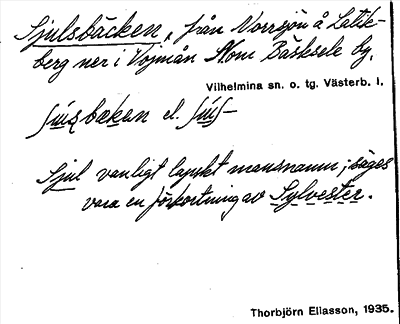 Sjulsbäcken, från Norrsjön å Latik-
berg ner i Vojmån 4 km Bäsksele by.
Vilhelmina sn. o. tg. Västerb. l.
bækɐn el.
Sjul vanligt lapskt mansnamn; säges
vara en förkortning av Sylvester.
Thorbjörn Eliasson, 1935.